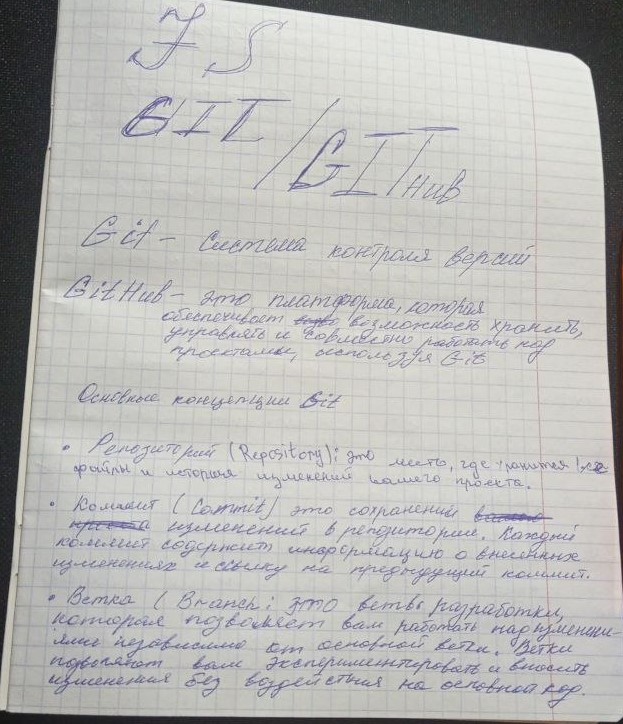 JS
GIT / GIT HUB
Git - Система контроля версий
GitHub - это платформа, которая
обеспечивает возможность хранить,
управлять и совместно работать над
проектами, используя Git
Основные концепции Git
• Репозиторий (Repository): это место, где хранится все
файлы и история изменений вашего проекта.
• Коммит (Commit) это сохранений
изменений в репозитории. Каждый
коммит содержит информацию о внесённых
изменениях и ссылку на предыдущий коммит.
• Ветка (Branch: это ветвь разработки,
которая позволяет вам работать над изменени-
ями независимо от основной ветки. Ветки
вам экспериментировать и вносить
изменения без воздействия на основной код.